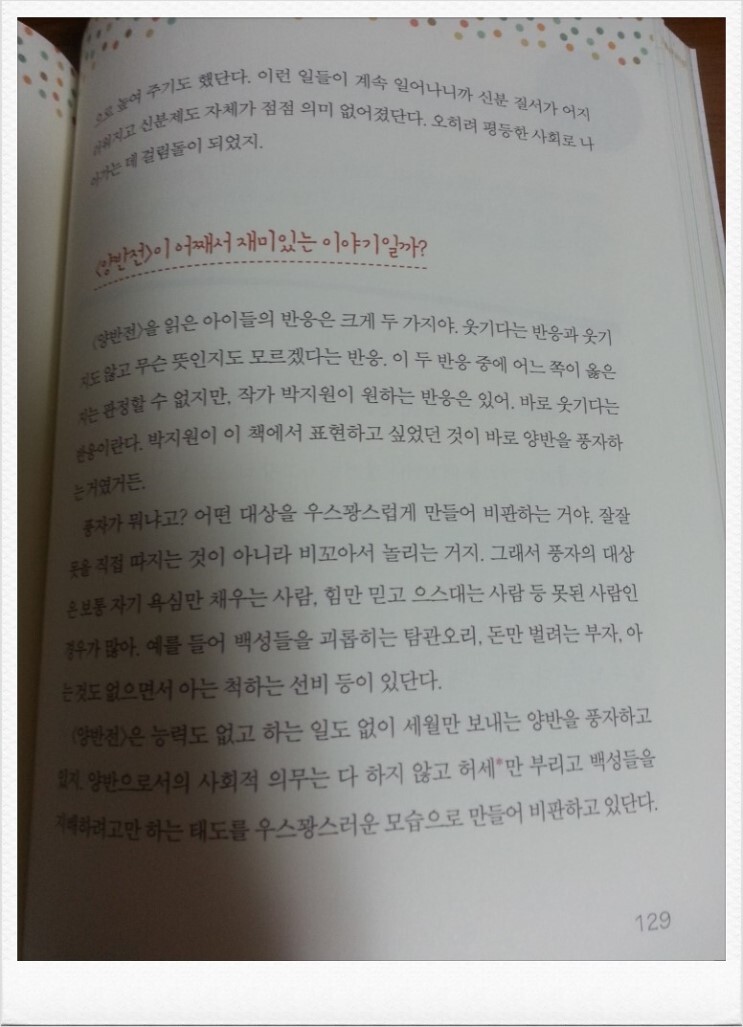 으로 높여 주기도 했단다. 이런 일들이 계속 일어나니까 신분 질서가 어지
러워지고 신분제도 자체가 점점 의미 없어졌단다. 오히려 평등한 사회로 나
아가는 데 걸림돌이 되었지.
<양반전>이 어째서 재미있는 이야기일까?
<양반전>을 읽은 아이들의 반응은 크게 두 가지야. 웃기다는 반응과 웃기
지도 않고 무슨 뜻인지도 모르겠다는 반응. 이 두 반응 중에 어느 쪽이 옳은
지는 판정할 수 없지만, 작가 박지원이 원하는 반응은 있어. 바로 웃기다는
반응이란다. 박지원이 이 책에서 표현하고 싶었던 것이 바로 양반을 풍자하
는 거였거든.
풍자가 뭐냐고? 어떤 대상을 우스꽝스럽게 만들어 비판하는 거야. 잘잘
못을 직접 따지는 것이 아니라 비꼬아서 놀리는 거지. 그래서 풍자의 대상
은 보통 자기 욕심만 채우는 사람, 힘만 믿고 으스대는 사람 등 못된 사람인
경우가 많아. 예를 들어 백성들을 괴롭히는 탐관오리, 돈만 벌려는 부자, 아
는 것도 없으면서 아는 척하는 선비 등이 있단다.
<양반전>은 능력도 없고 하는 일도 없이 세월만 보내는 양반을 풍자하고
있지. 양반으로서의 사회적 의무는 다 하지 않고 허세*만 부리고 백성들을
지배하려고만 하는 태도를 우스꽝스러운 모습으로 만들어 비판하고 있단다.
129